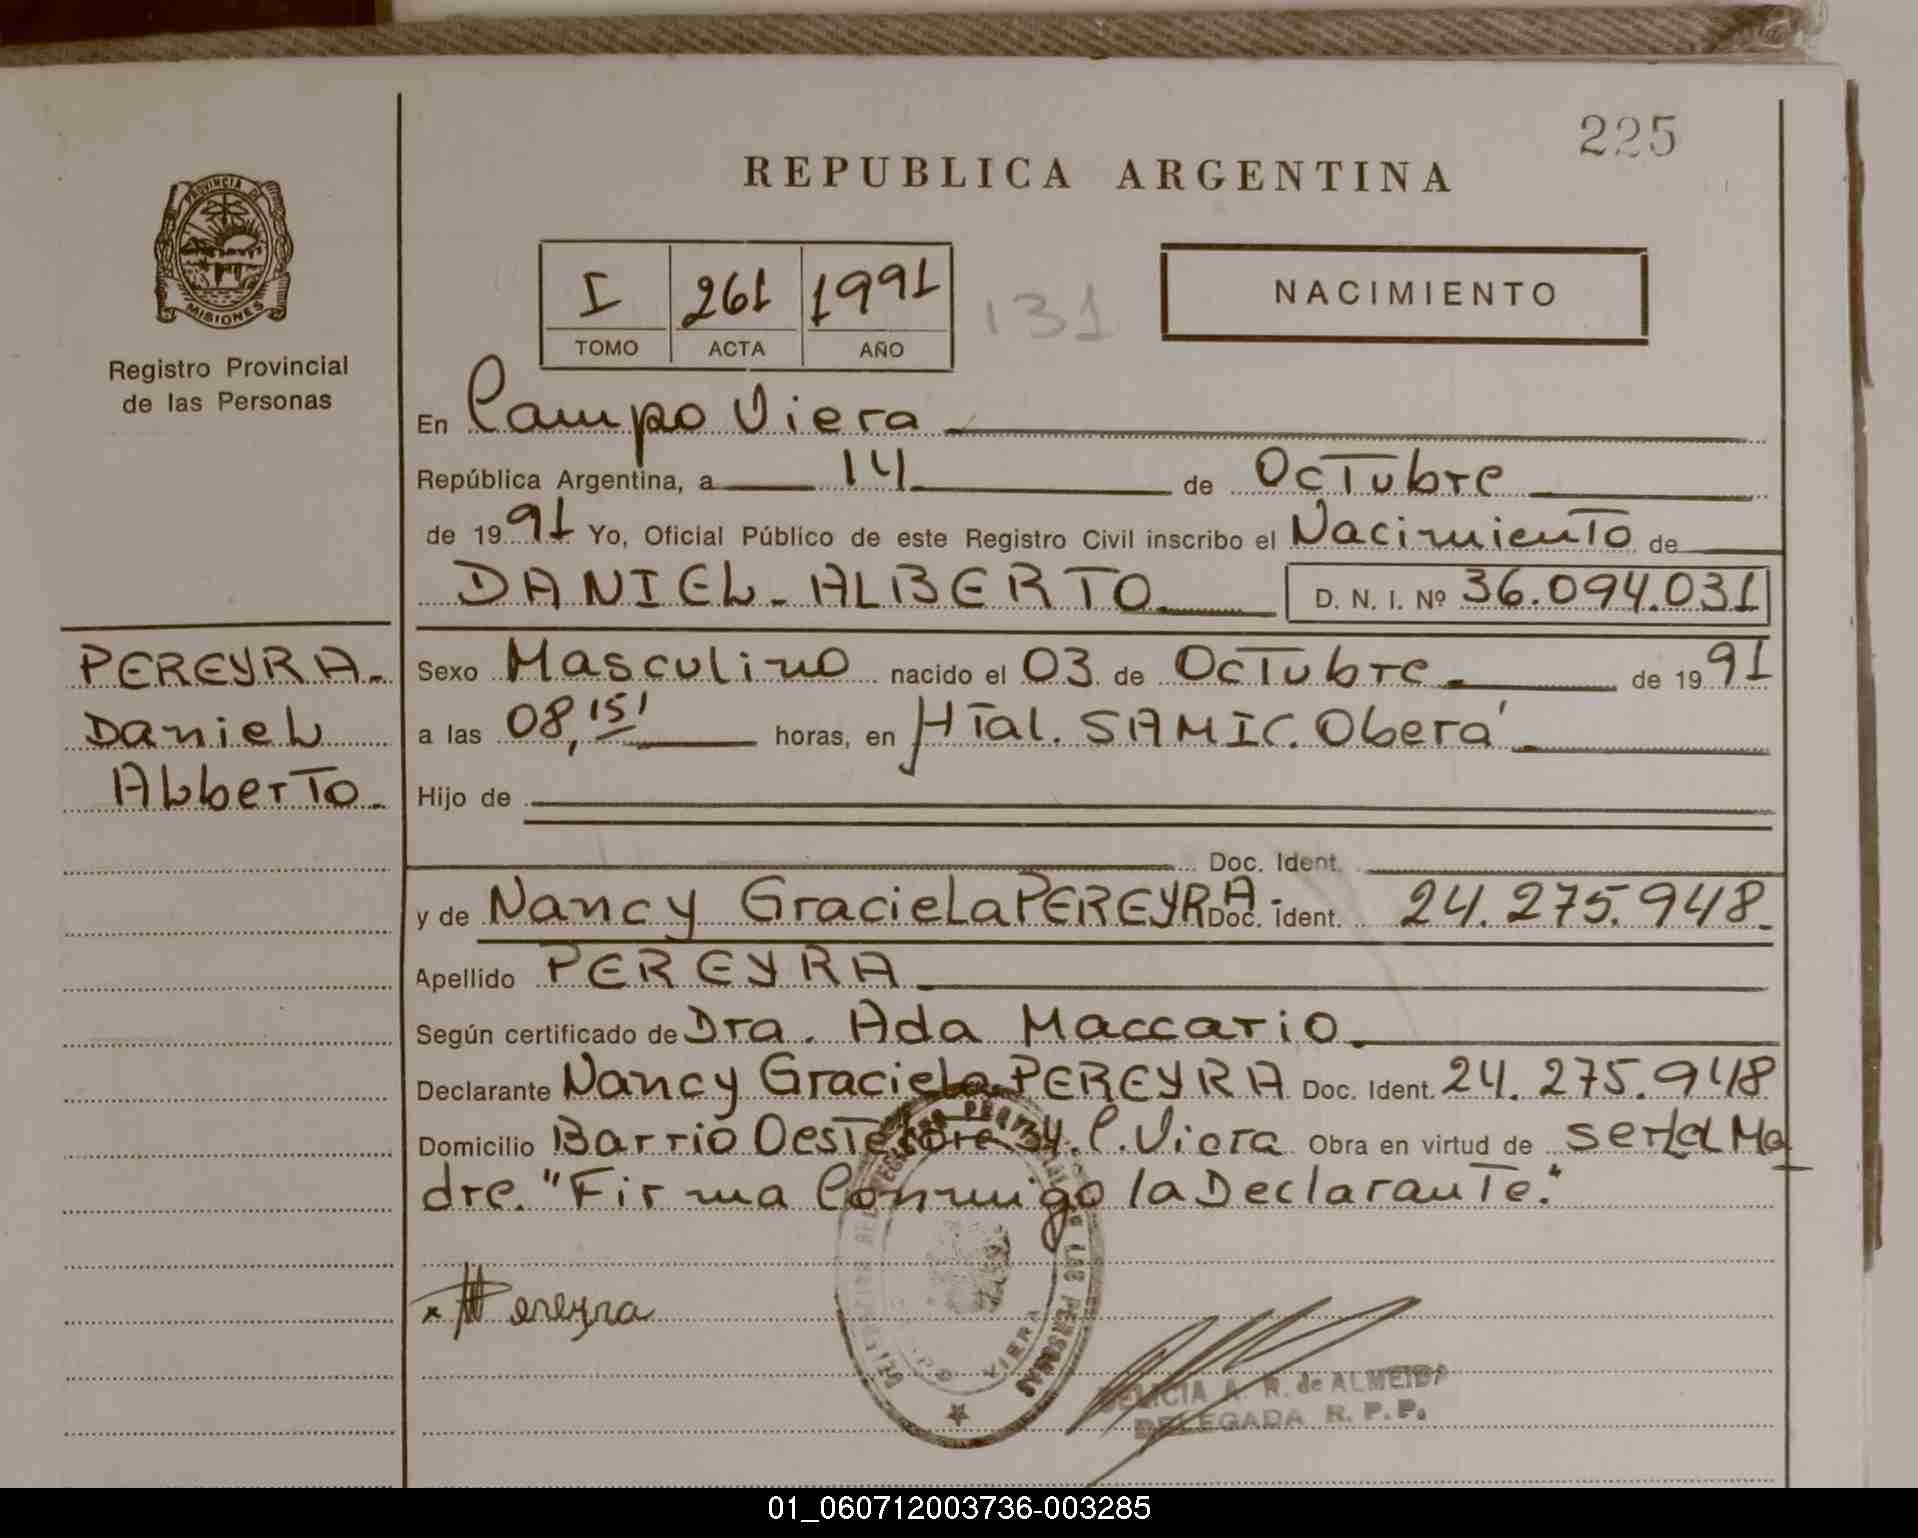 225
REPUBLICA ARGENTINA
PROVINCIA DE
MISIONES
Registro Provincial
de las Personas
I 261 1991
TOMO ACTA AÑO
131
NACIMIENTO
En Campo Viera
República Argentina, a 14 de Octubre
de 1991 Yo, Oficial Público de este Registro Civil inscribo el Nacimiento de
DANIEL ALBERTO D. N. I. Nº 36.094.031
PEREYRA
Daniel
Alberto
Sexo Masculino nacido el 03 de Octubre de 1991
a las 08,15' horas, en Htal. SAMIC. Oberá
Hijo de
Doc. Ident.
y de Nancy Graciela PEREYRA Doc. Ident. 24.275.948
Apellido PEREYRA
Según certificado de Dra. Ada Maccario
Declarante Nancy Graciela PEREYRA Doc. Ident. 24.275.948
Domicilio Barrio Oeste C. Viera Obra en virtud de ser la Ma
dre. "Firma Conmigo la Declarante."
Pereyra
LAS PERSONAS
VIERA
DELICIA A. R. de ALMEIDA
DELEGADA R. P. P.
01_060712003736-003285